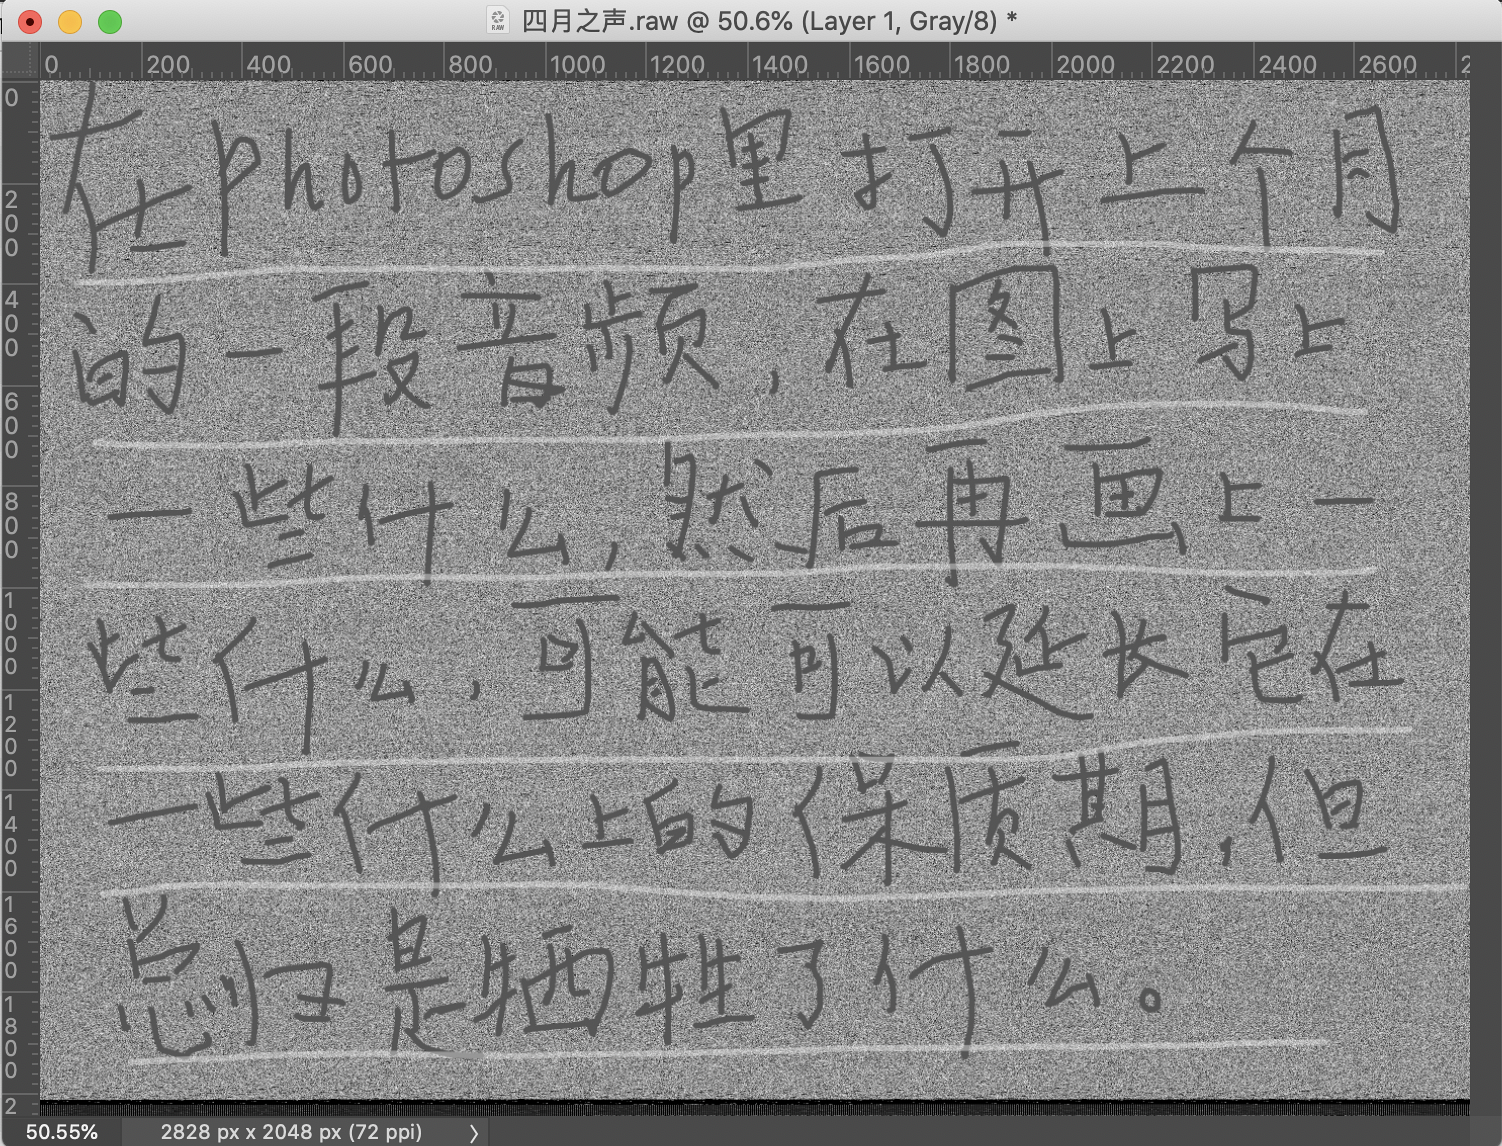 四月之声.raw @ 50.6% (Layer 1, Gray/8) *
0 200 400 600 800 1000 1200 1400 1600 1800 2000 2200 2400 2600 2
0
200
400
600
800
1000
1200
1400
1600
1800
2
在photoshop里打开上个月
的一段音频,在图上写上
一些什么,然后再画上一
些什么,可能可以延长它在
一些什么上的保质期,但
总归是牺牲了什么。
50.55% 2828 px x 2048 px (72 ppi)